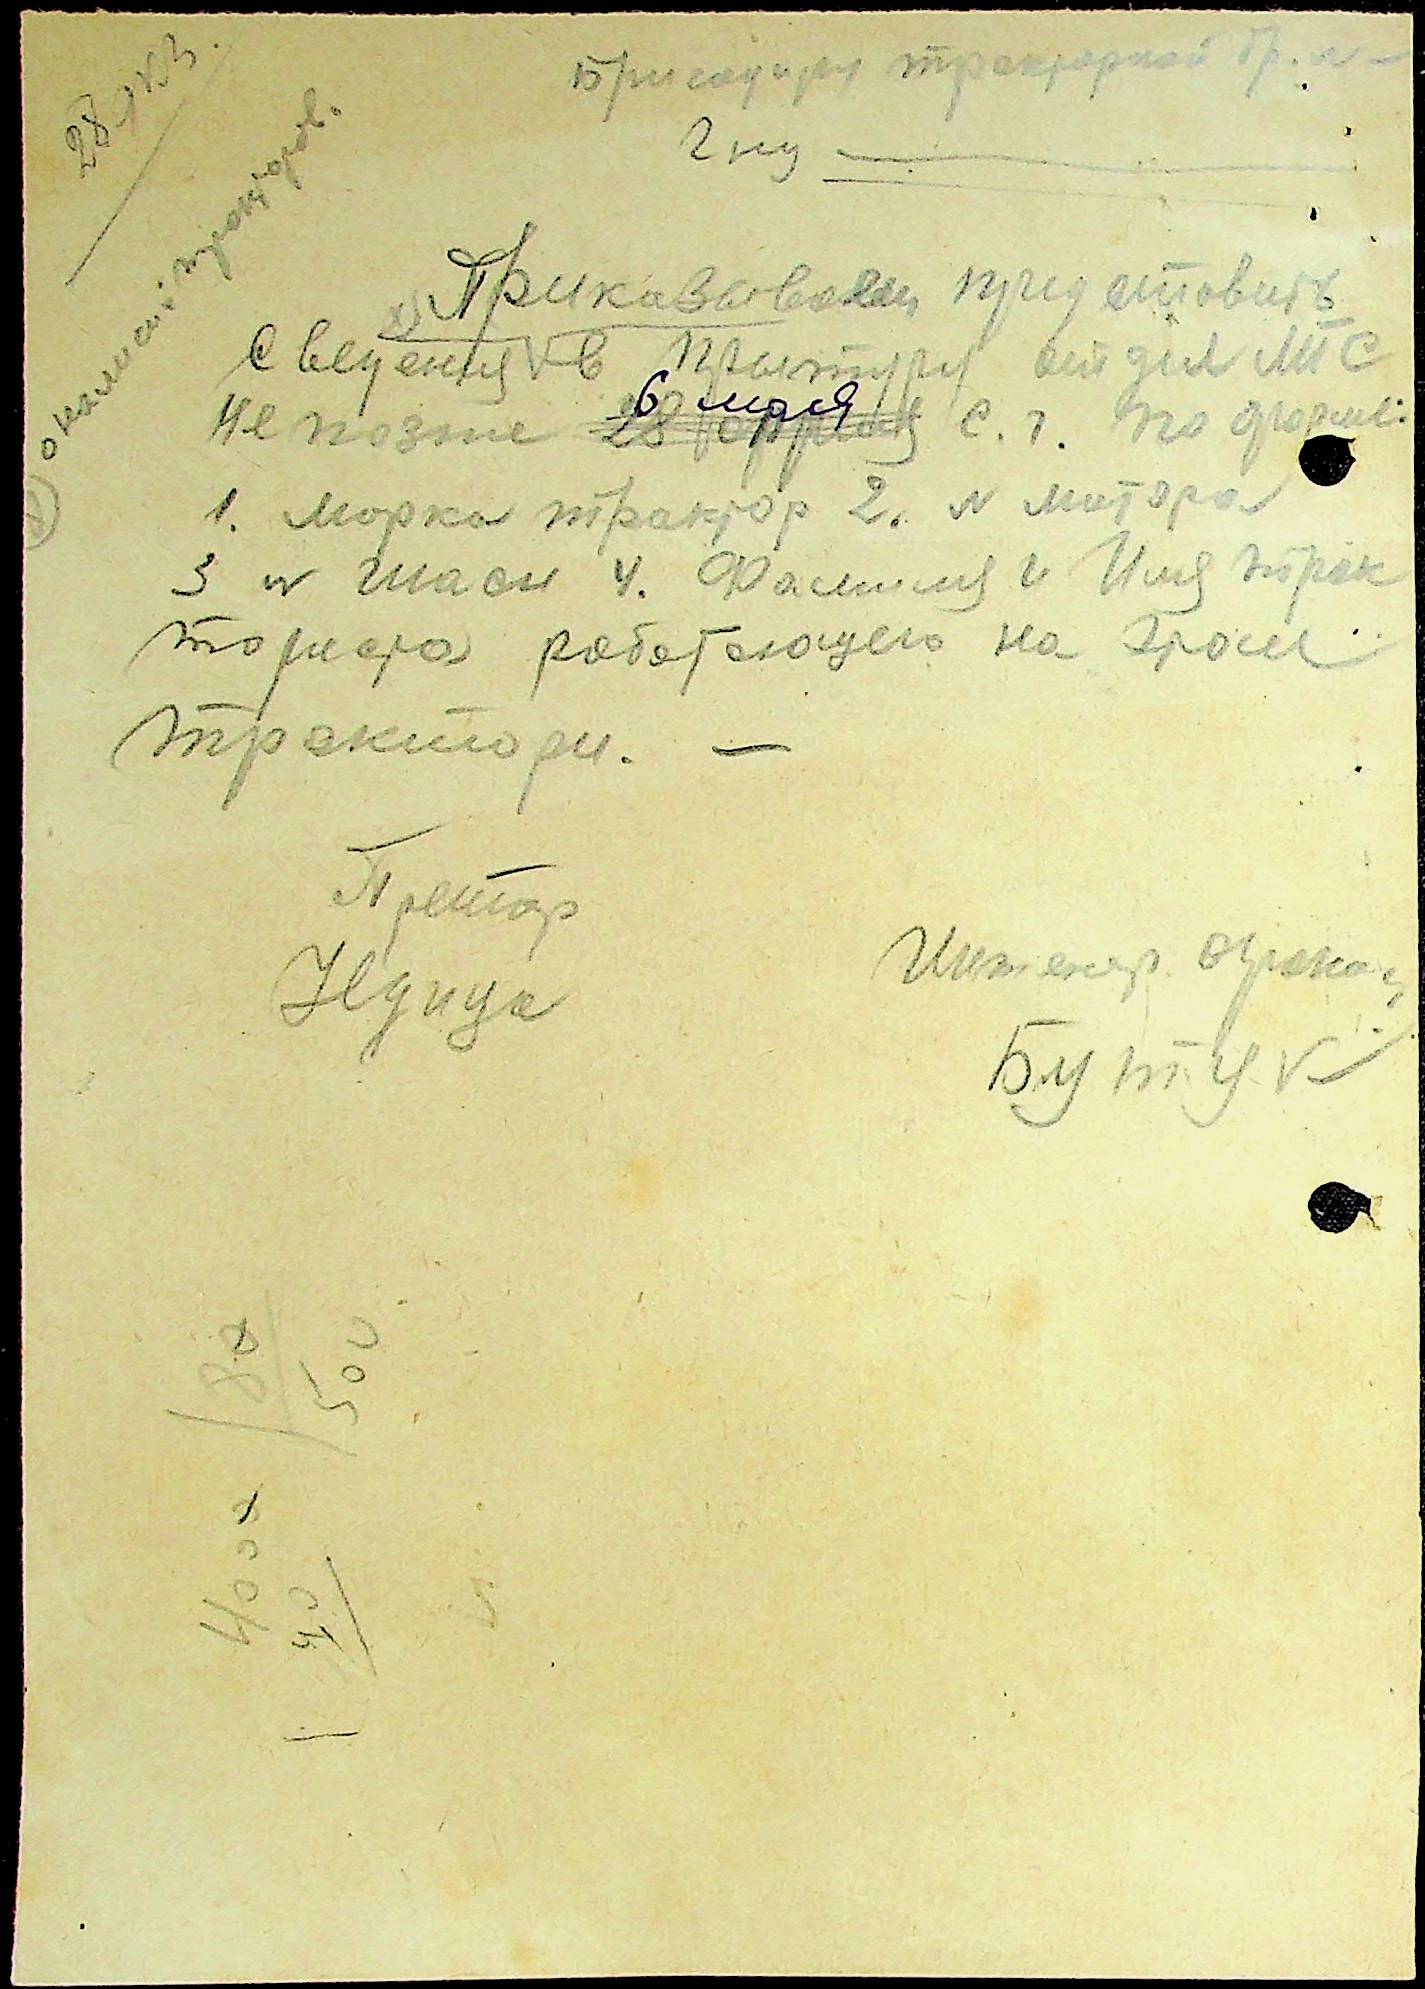 28 экз.
о наличии тракторов.
Бригадиру тракторной бр.
Г-ну
Приказываем представить
сведения в Претуру отдел МТС
не позже 28 апреля 6 мая с. г. по форме:
1. Марка трактор 2. N мотора
3 N шаси 4. Фамилия и Имя трак
ториста работающего на этом
тракторе. —
Претор
Недица
Инженер
Бутук
80
500
400